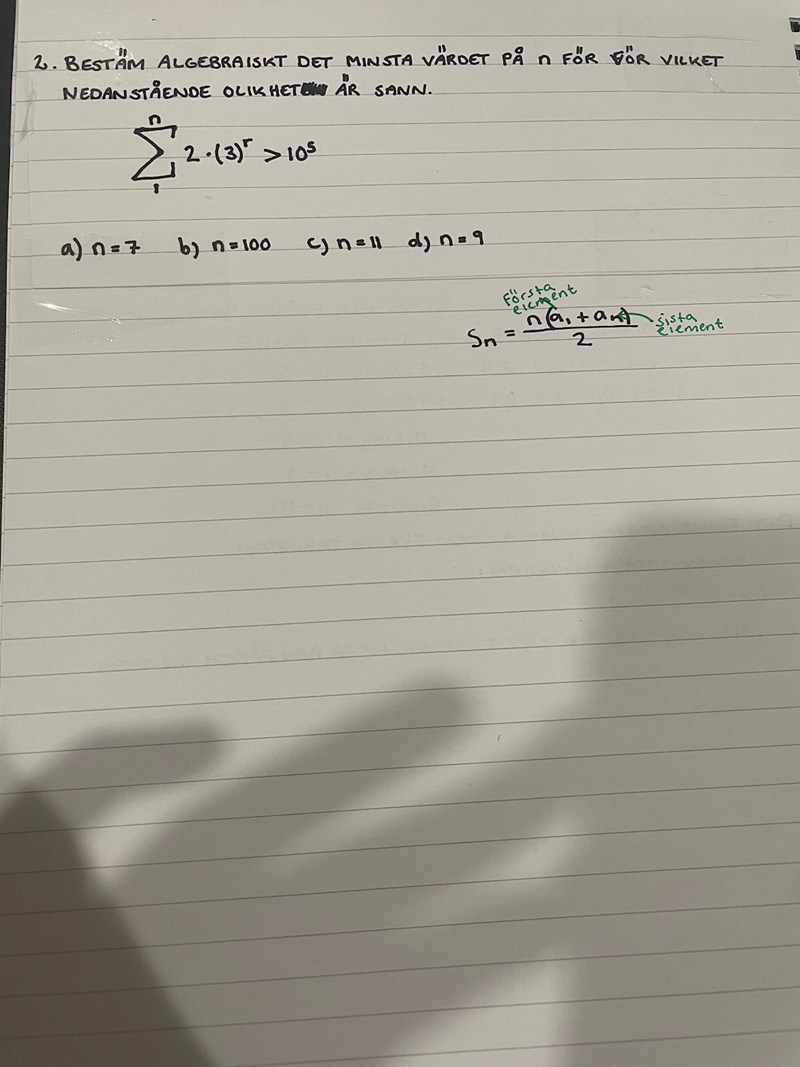 2. BESTÄM ALGEBRAISKT DET MINSTA VÄRDET PÅ n FÖR FÖR VILKET
NEDANSTÅENDE OLIKHET ÄR SANN.
n
∑ 2·(3)^r > 10^5
1
a) n=7 b) n=100 c) n=11 d) n=9
Första
element
Sn = n(a₁ + an) / 2
sista
element